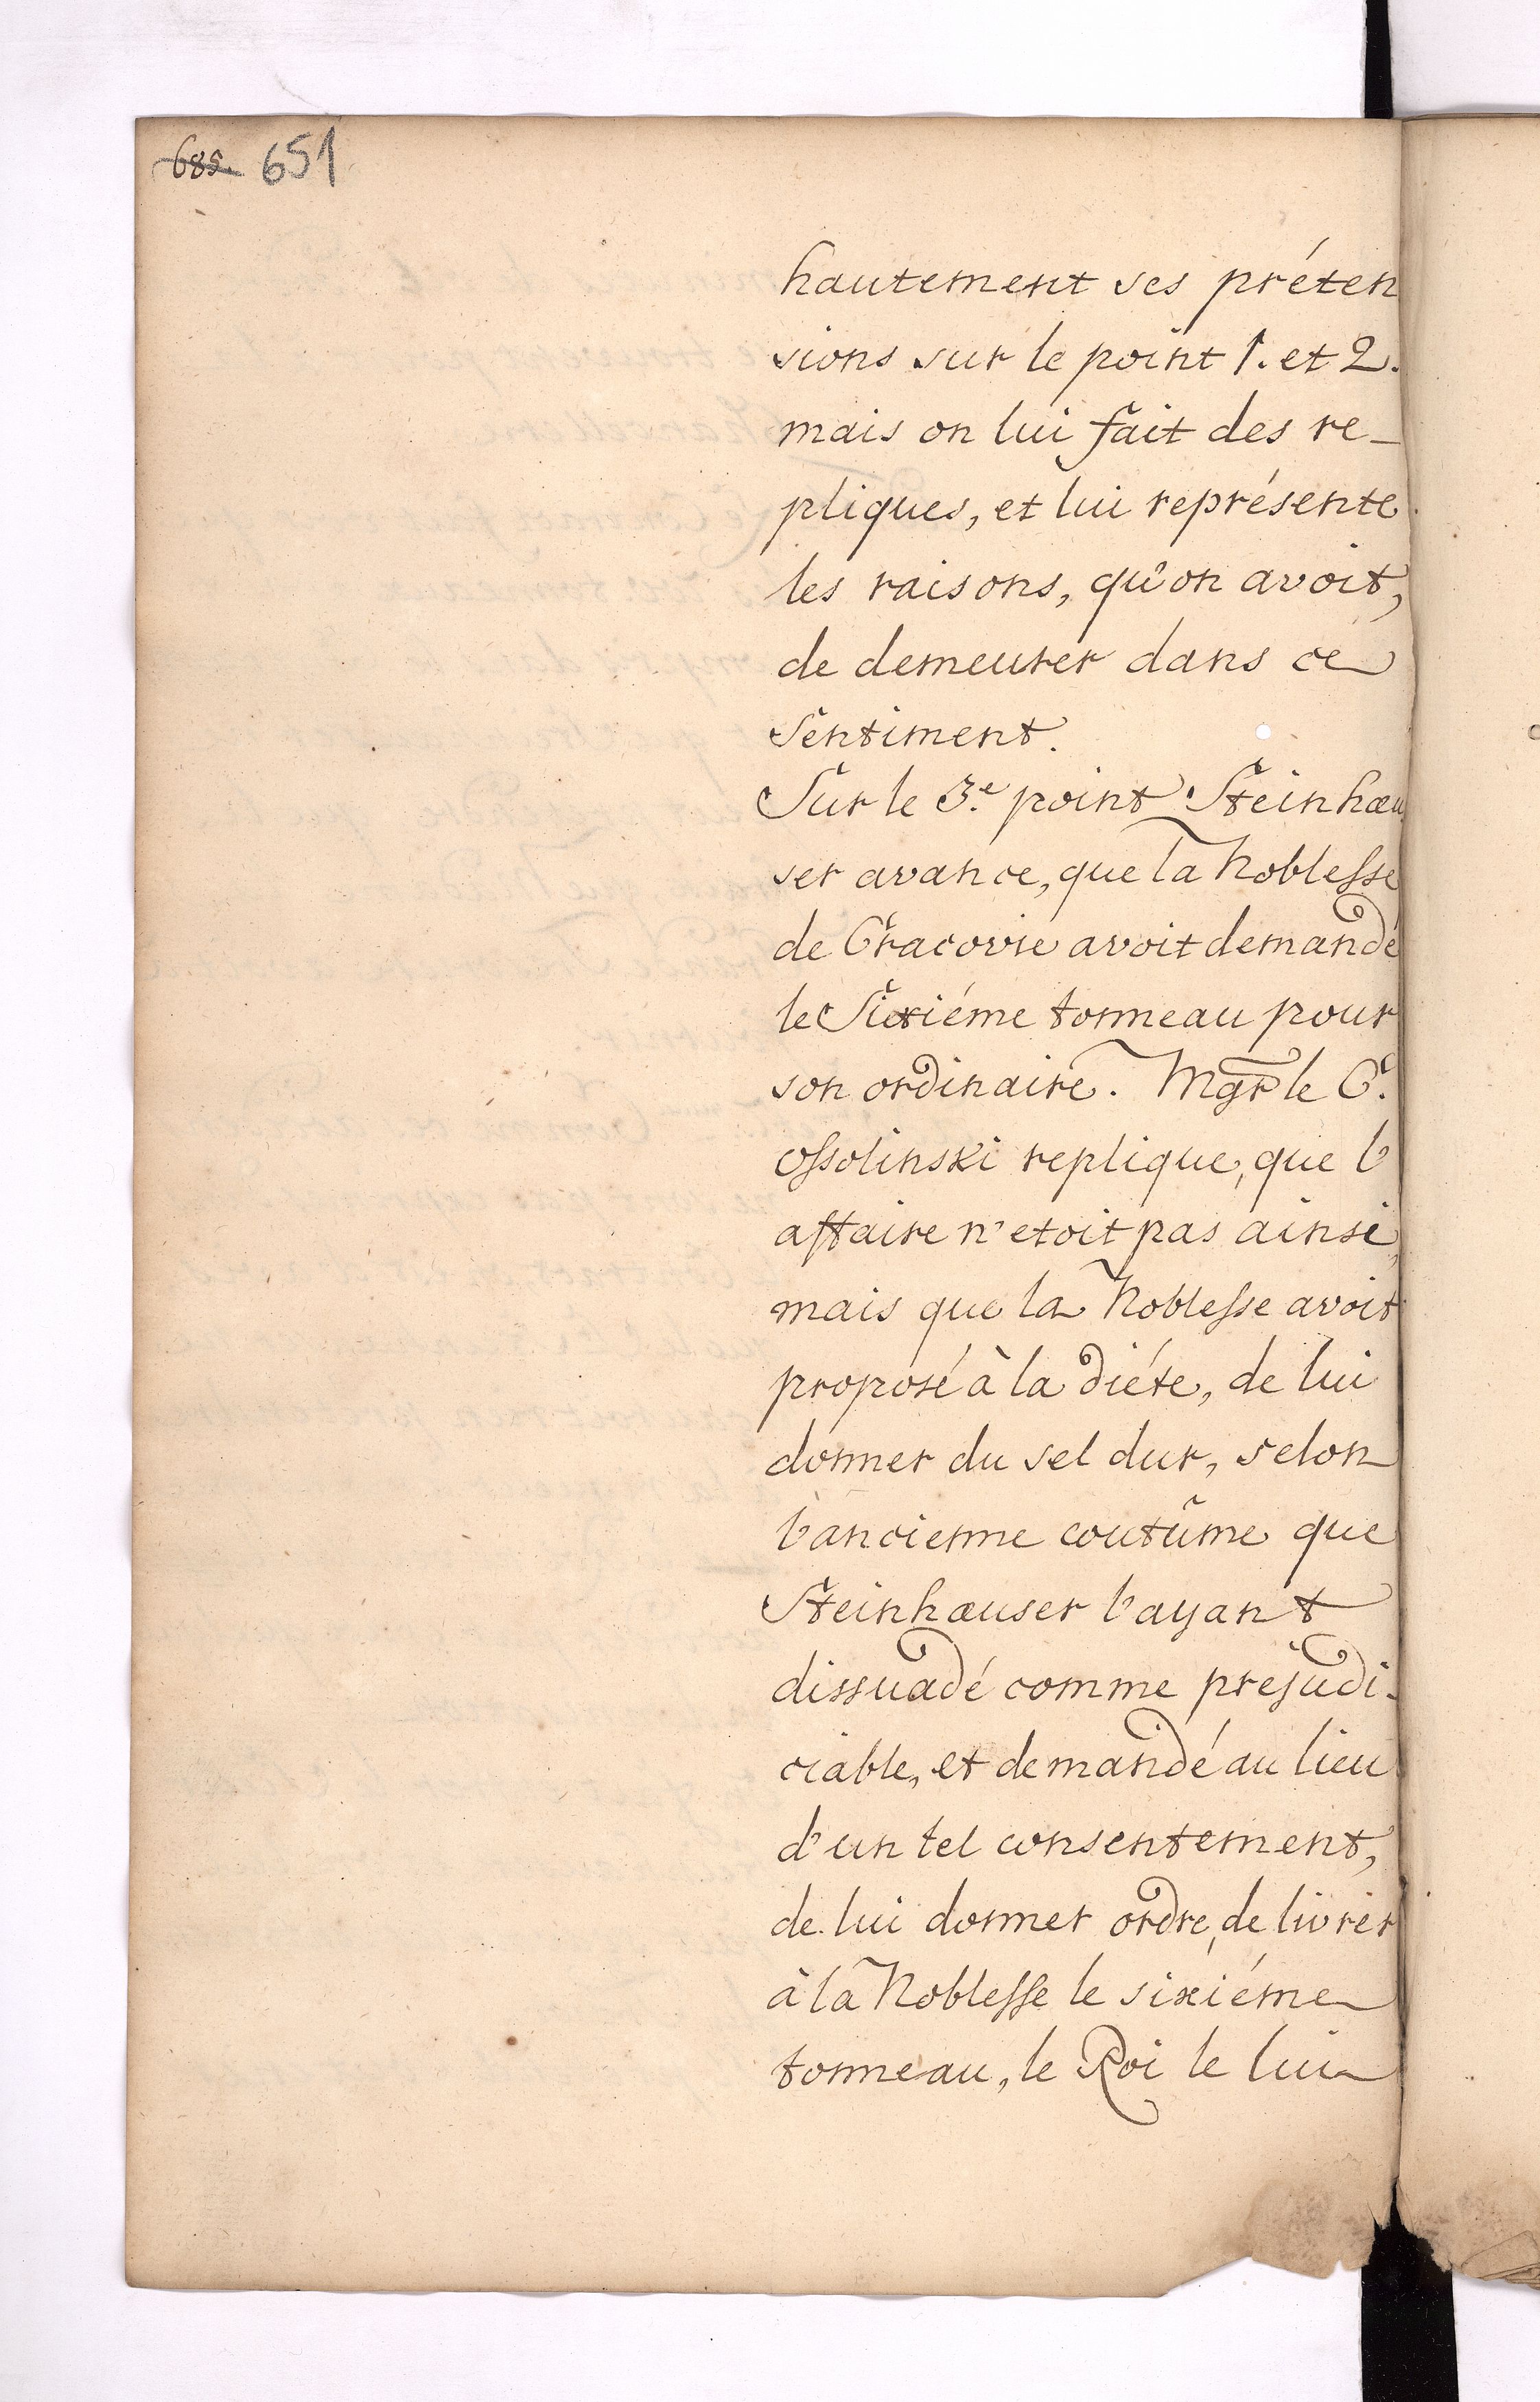 685. 651
hautement ses préten
sions sur le point 1. et 2.
mais on lui fait des re_
pliques, et lui représente
les raisons, qu'on avoit,
de demeurer dans ce
Sentiment.
Sur le 3.e point Steinhæu
ser avance, que la Noblesse
de Cracovie avoit demandé
le Sixiéme tonneau pour
son ordinaire. Mgr le C.
Ossolinski replique, que l'
affaire n'etoit pas ainsi,
mais que la Noblesse avoit
proposé à la diéte, de lui
donner du sel dur, selon
l'ancienne coutûme que
Steinhæuser l'ayant
dissuadé comme prejudi-
ciable, et demandé au lieu
d'un tel consentement,
de lui donner ordre, de livrer
à la Noblesse le sixiéme
tonneau, le Roi le lui